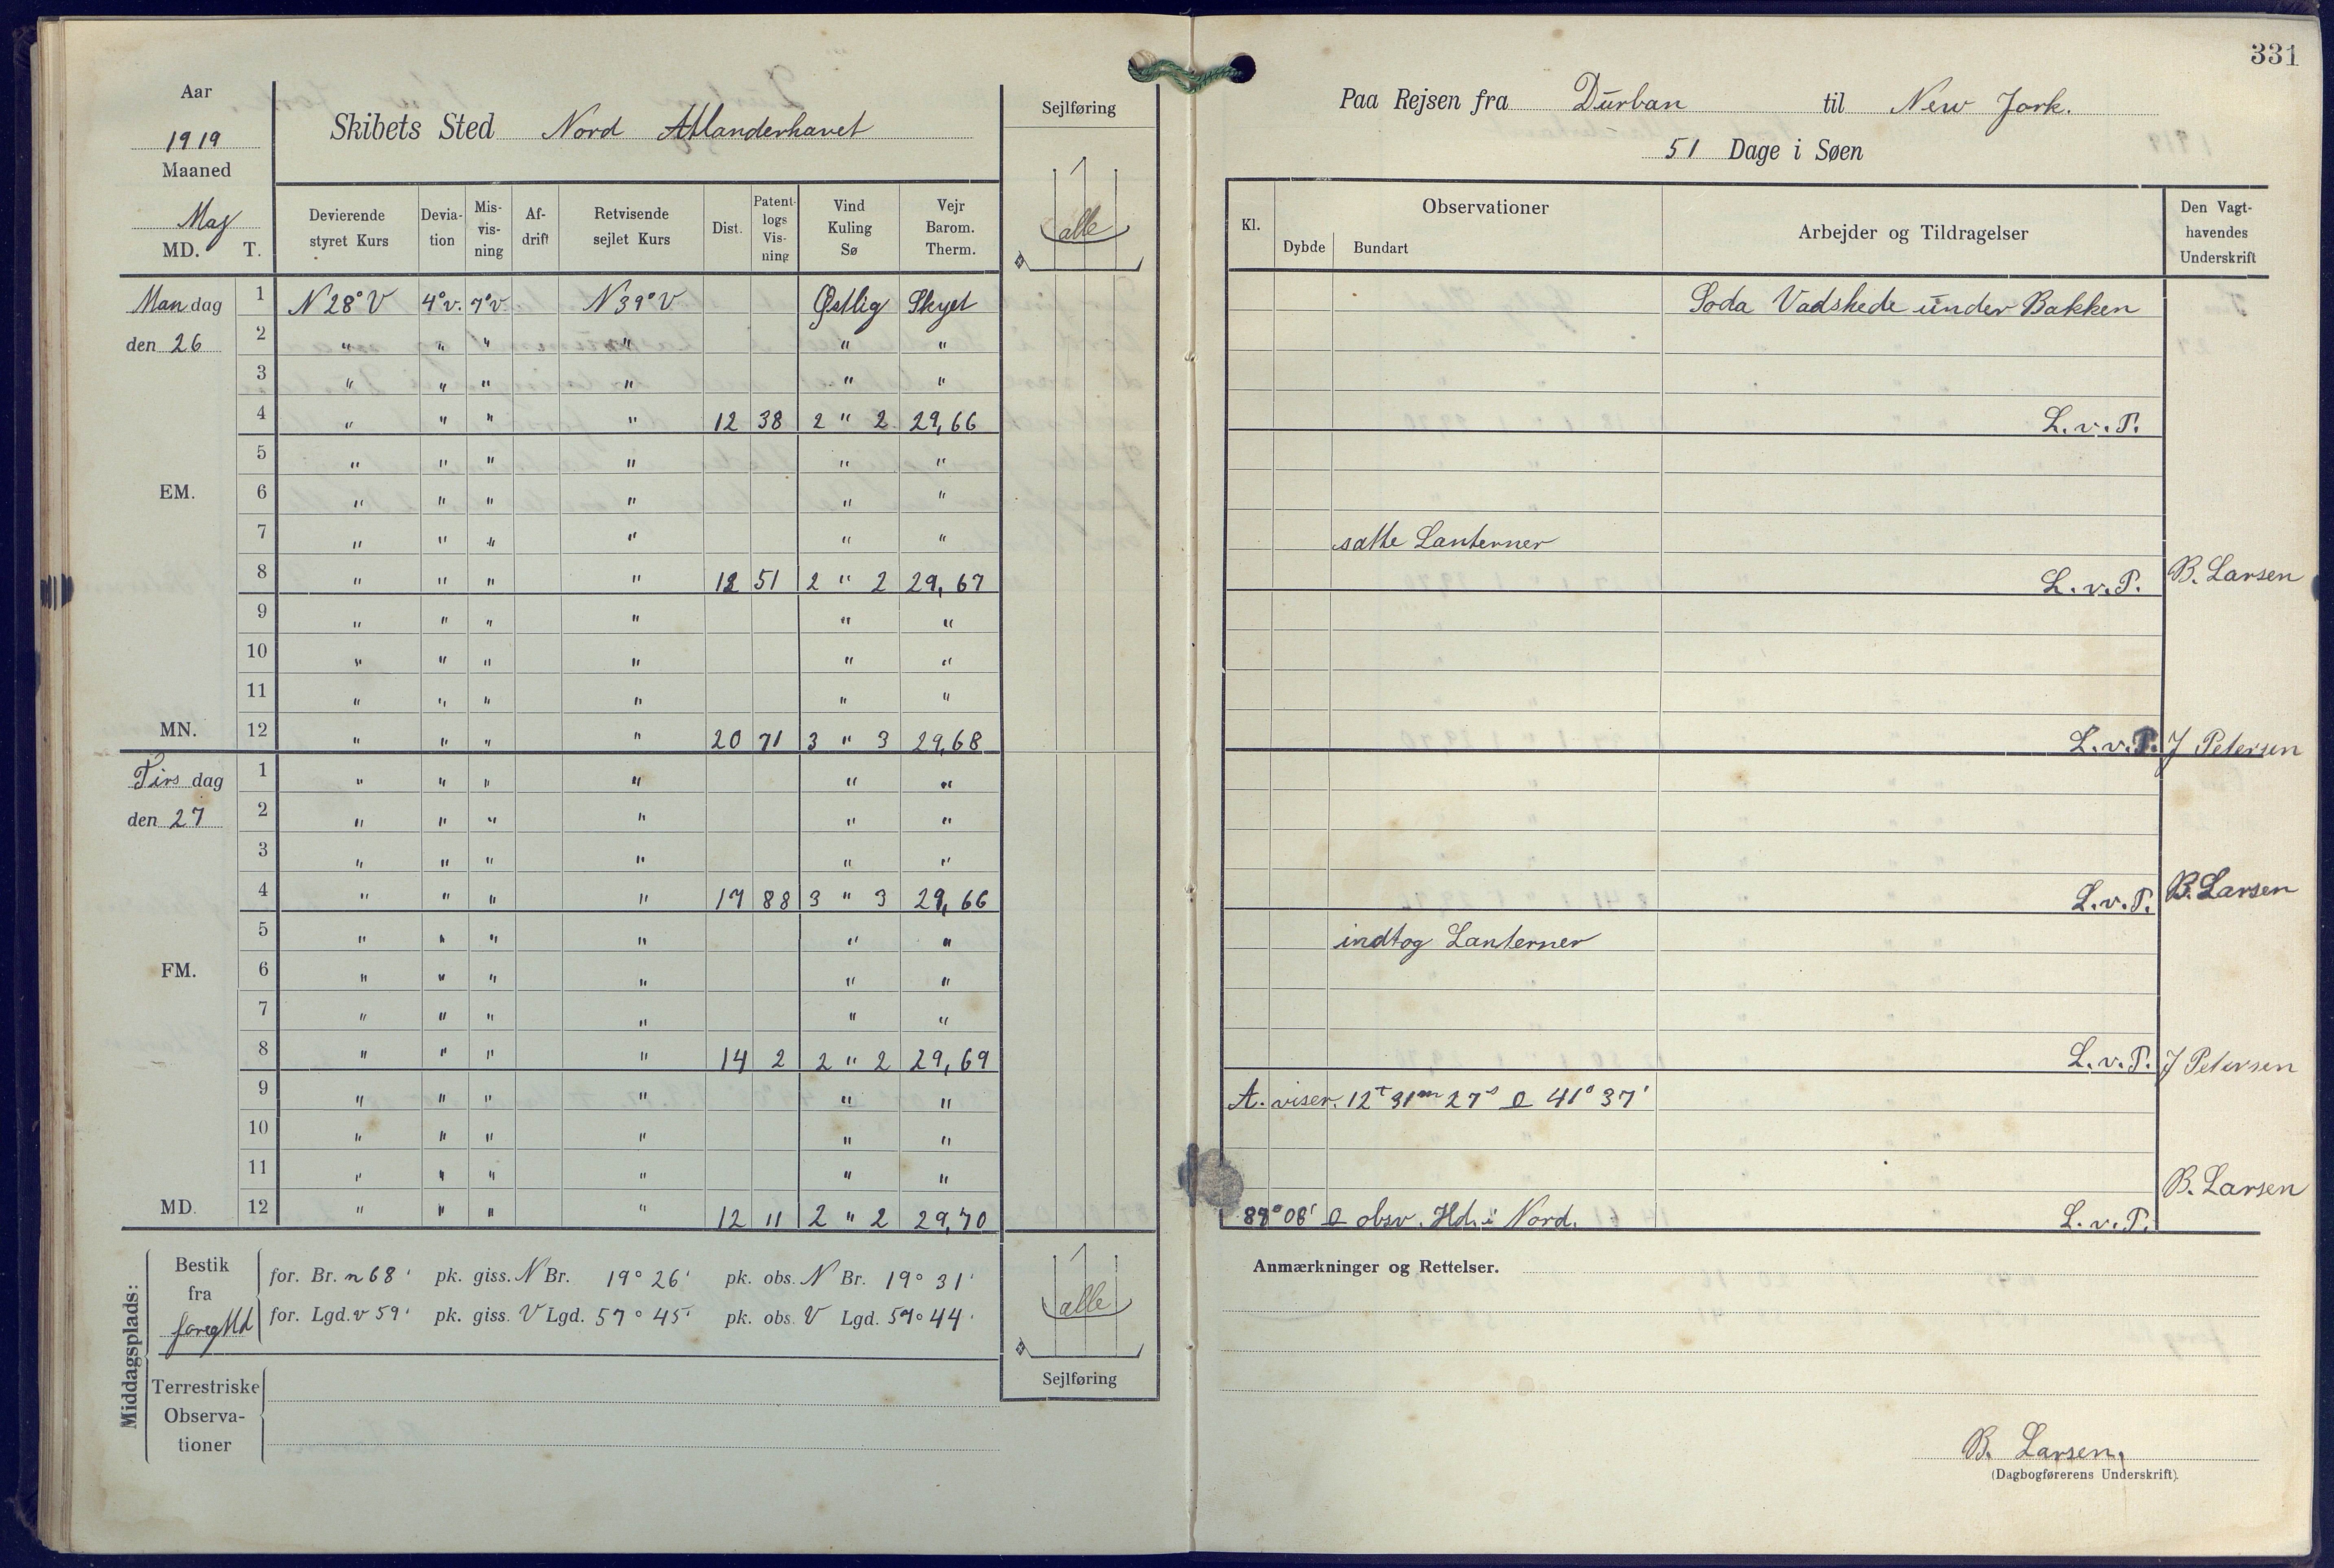 331
Aar
1919
Maaned
Maj
MD. T.
Skibets Sted Nord Atlanderhavet
Sejlføring
alle
Paa Rejsen fra Durban til New Jork.
51 Dage i Søen
Devierende styret Kurs
Deviation
Misvisning
Afdrift
Retvisende sejlet Kurs
Dist.
Patentlogs Visning
Vind Kuling Sø
Vejr Barom. Therm.
Kl.
Observationer
Dybde Bundart
Arbejder og Tildragelser
Den Vagthavendes Underskrift
Mandag 1 N 28° V 4° v. 7° v. N 39° V Østlig Skyet Soda Vadskede under Bakken
den 26 2 " " " " " "
3 " " " " " "
4 " " " " 12 38 2 " 2 29,66 L.v.P.
5 " " " " " "
EM. 6 " " " " " "
7 " " " " " " satte Lanterner
8 " " " " 12 51 2 " 2 29,67 L.v.P. B. Larsen
9 " " " " " "
10 " " " " " "
11 " " " " " "
MN. 12 " " " " 20 71 3 " 3 29,68 L.v.P. J Petersen
Tirsdag 1 " " " " " "
den 27 2 " " " " " "
3 " " " " " "
4 " " " " 17 88 3 " 3 29,66 L.v.P. B. Larsen
5 " " " " " " indtog Lanterner
FM. 6 " " " " " "
7 " " " " " "
8 " " " " 14 2 2 " 2 29,69 L.v.P. J Petersen
9 " " " " " " A. viser. 12t 31m 27s 41° 37'
10 " " " " " "
11 " " " " " " B. Larsen
MD. 12 " " " " 12 11 2 " 2 29,70 89° 06' obsv. Hd. i Nord. L.v.P.
Middagsplads:
Bestik fra foreg Md
for. Br. n 68' pk. giss. N Br. 19° 26' pk. obs. N Br. 19° 31'
for. Lgd. v 59' pk. giss. V Lgd. 57° 45' pk. obs. V Lgd. 57° 44'
alle
Sejlføring
Terrestriske Observationer
Anmærkninger og Rettelser.
B. Larsen,
(Dagbogførerens Underskrift).